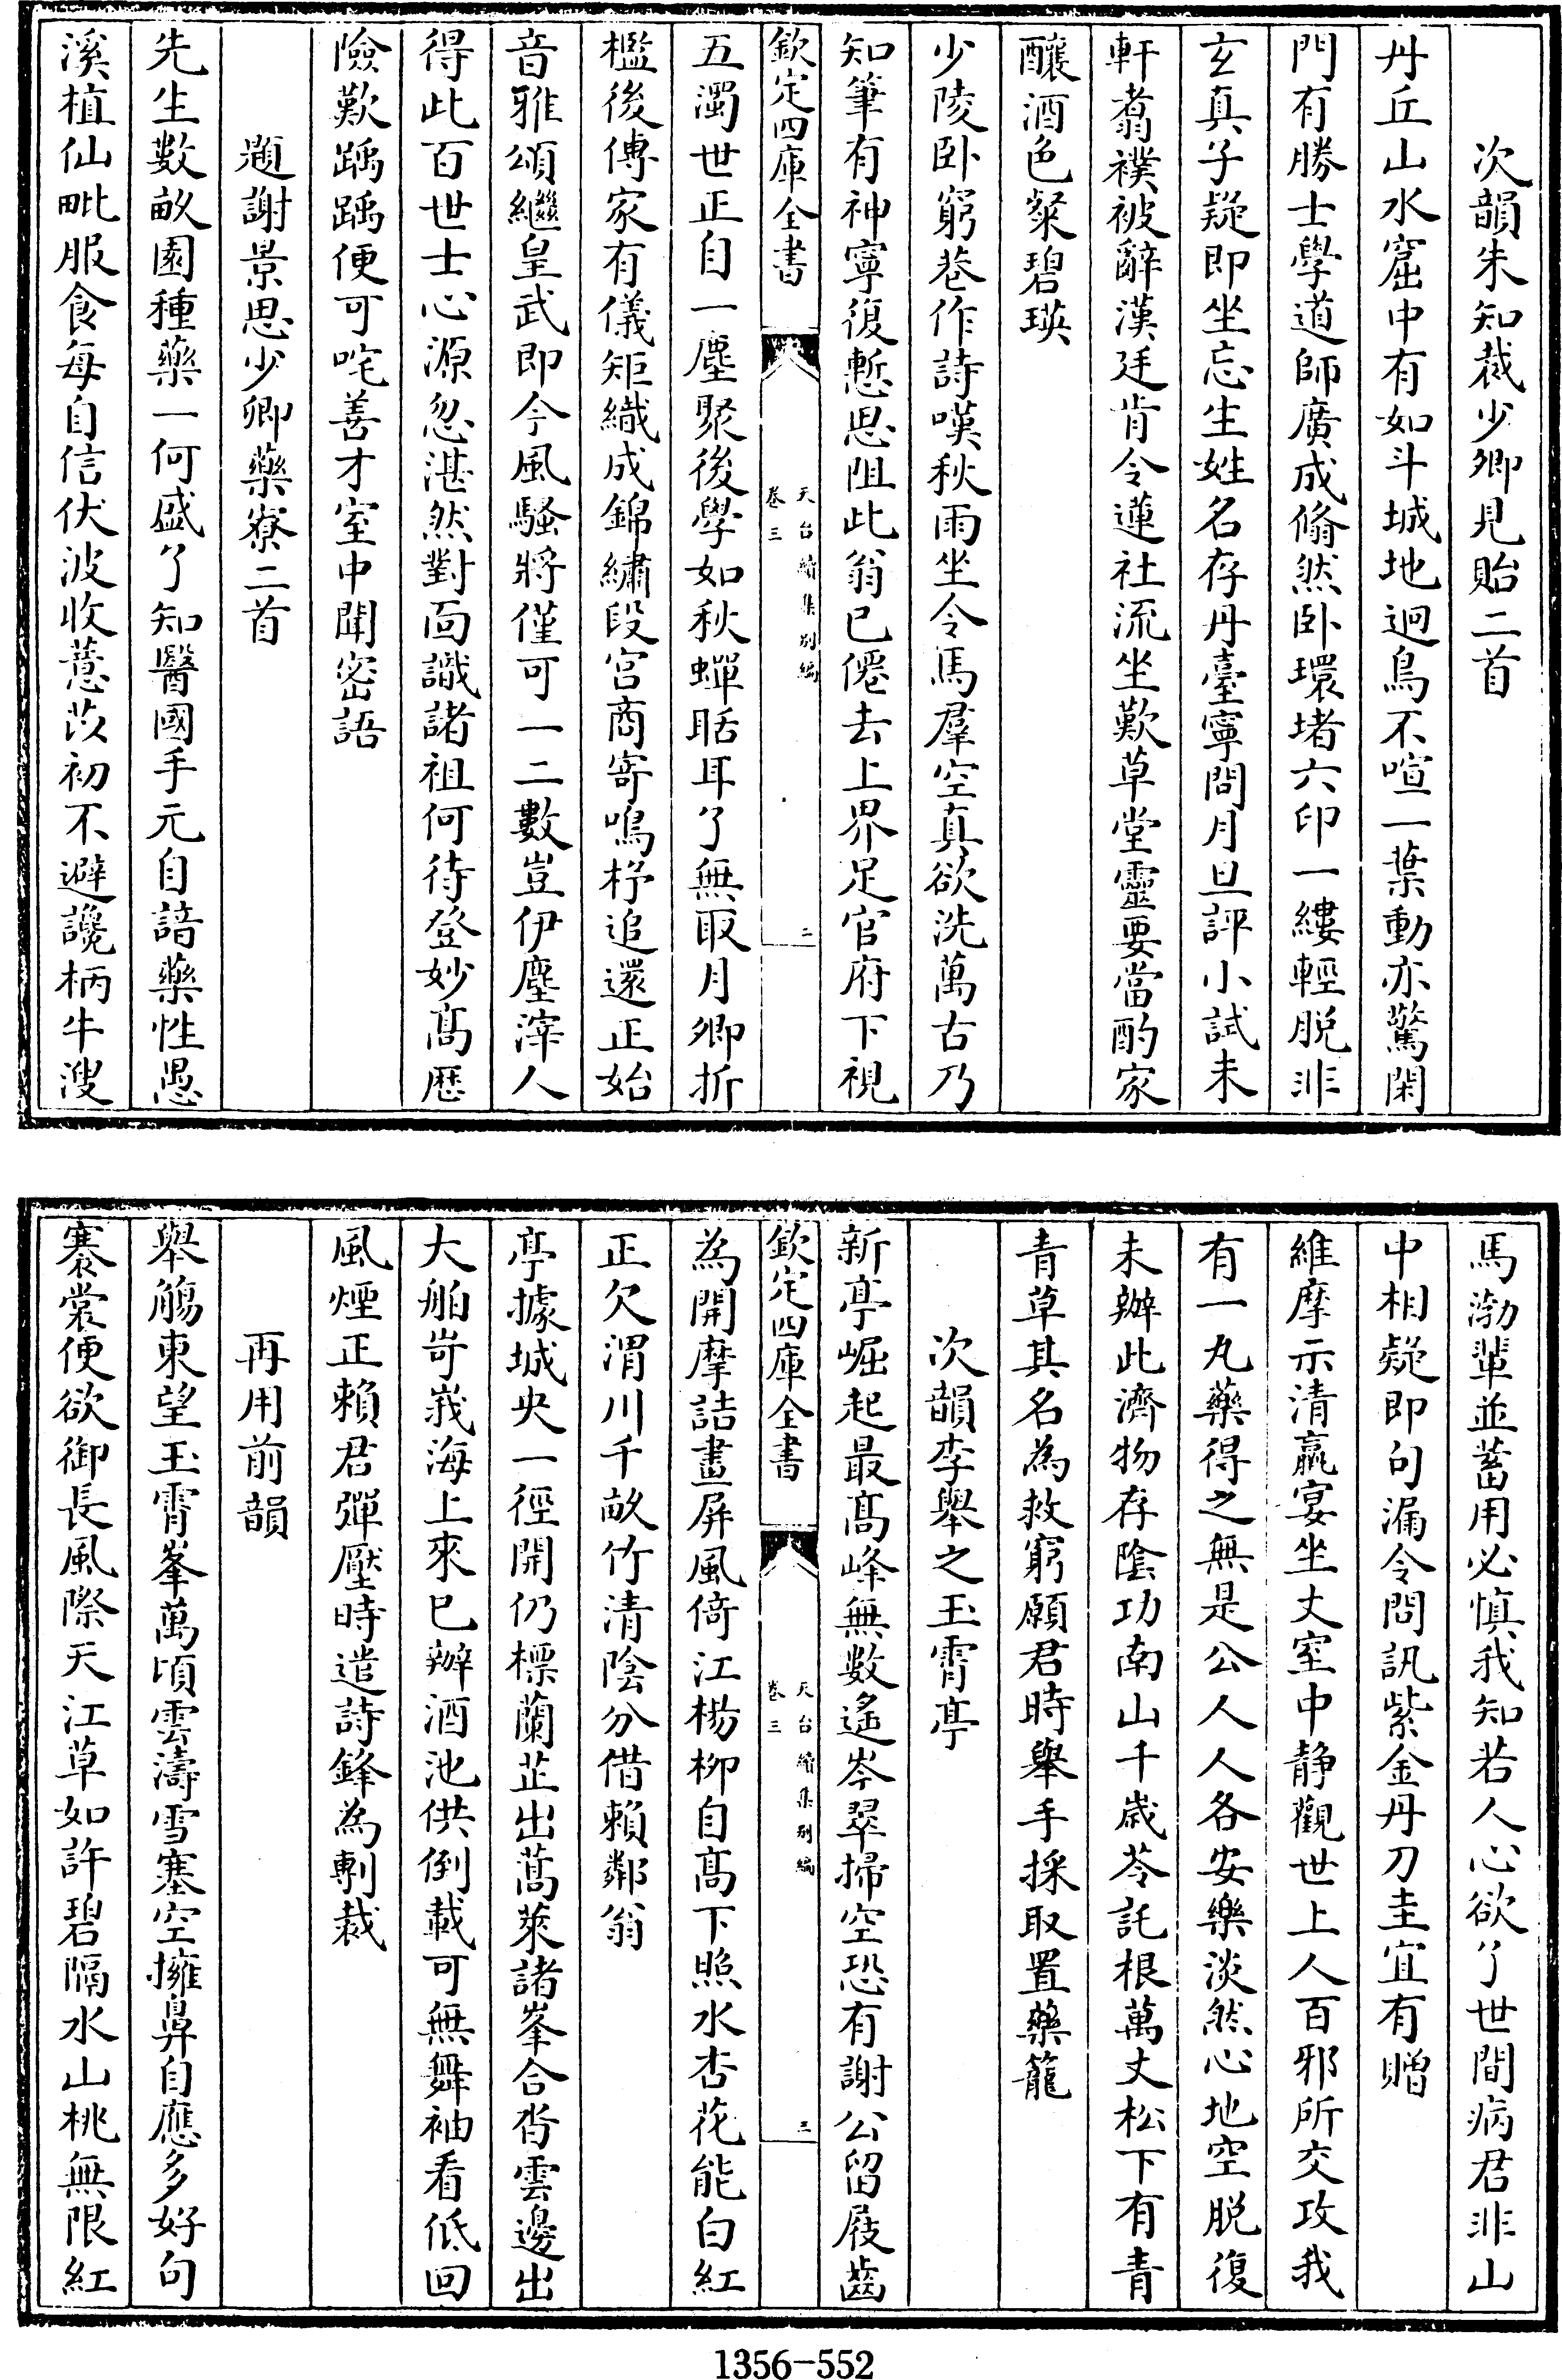 次韻朱知裁少卿見貽二首
丹丘山水窟中有如斗城地迥鳥不喧一葉動亦驚閑
門有勝士學道師廣成翛然卧環堵六印一縷輕脱非
玄真子疑即坐忘生姓名存丹臺寧問月旦評小試未
軒翥襆被辭漢廷肯令蓮社流坐歎草堂靈要當酌家
釀酒色粲碧瑛
少陵卧窮巷作詩嘆秋雨坐令馬羣空真欲洗萬古乃
知筆有神寧復慙思阻此翁已僊去上界足官府下視
欽定四庫全書
天台續集别編
卷三
二
五濁世正自一塵聚後學如秋蟬聒耳了無取月卿折
檻後傳家有儀矩織成錦繡段宫商寄鳴杼追還正始
音雅頌繼皇武即今風騷將僅可一二數豈伊塵滓人
得此百世士心源忽湛然對面識諸祖何待登妙髙歴
險歎踽踽便可咤善才室中聞密語
題謝景思少卿藥寮二首
先生數畝園種藥一何盛了知醫國手元自諳藥性愚
溪植仙毗服食每自信伏波收薏苡初不避讒柄牛溲
馬渤輩並蓄用必慎我知若人心欲了世間病君非山
中相疑即句漏令問訊紫金丹刀圭宜有贈
維摩示清羸宴坐丈室中静觀世上人百邪所交攻我
有一丸藥得之無是公人人各安樂淡然心地空脱復
未辦此濟物存陰功南山千歲苓託根萬丈松下有青
青草其名為救窮願君時舉手採取置藥籠
次韻李舉之玉霄亭
新亭崛起最髙峰無數遙岑翠掃空恐有謝公留屐齒
欽定四庫全書
天台續集别編
卷三
三
為開摩詰畫屏風倚江楊柳自髙下照水杏花能白紅
正欠渭川千畝竹清陰分借賴鄰翁
亭據城央一徑開仍標蘭芷出蒿萊諸峯合沓雲邊出
大舶岢峩海上來已辦酒池供倒載可無舞袖看低回
風煙正賴君彈壓時遣詩鋒為剸裁
再用前韻
舉觴東望玉霄峯萬頃雲濤雪塞空擁鼻自應多好句
褰裳便欲御長風際天江草如許碧隔水山桃無限紅
1356-552